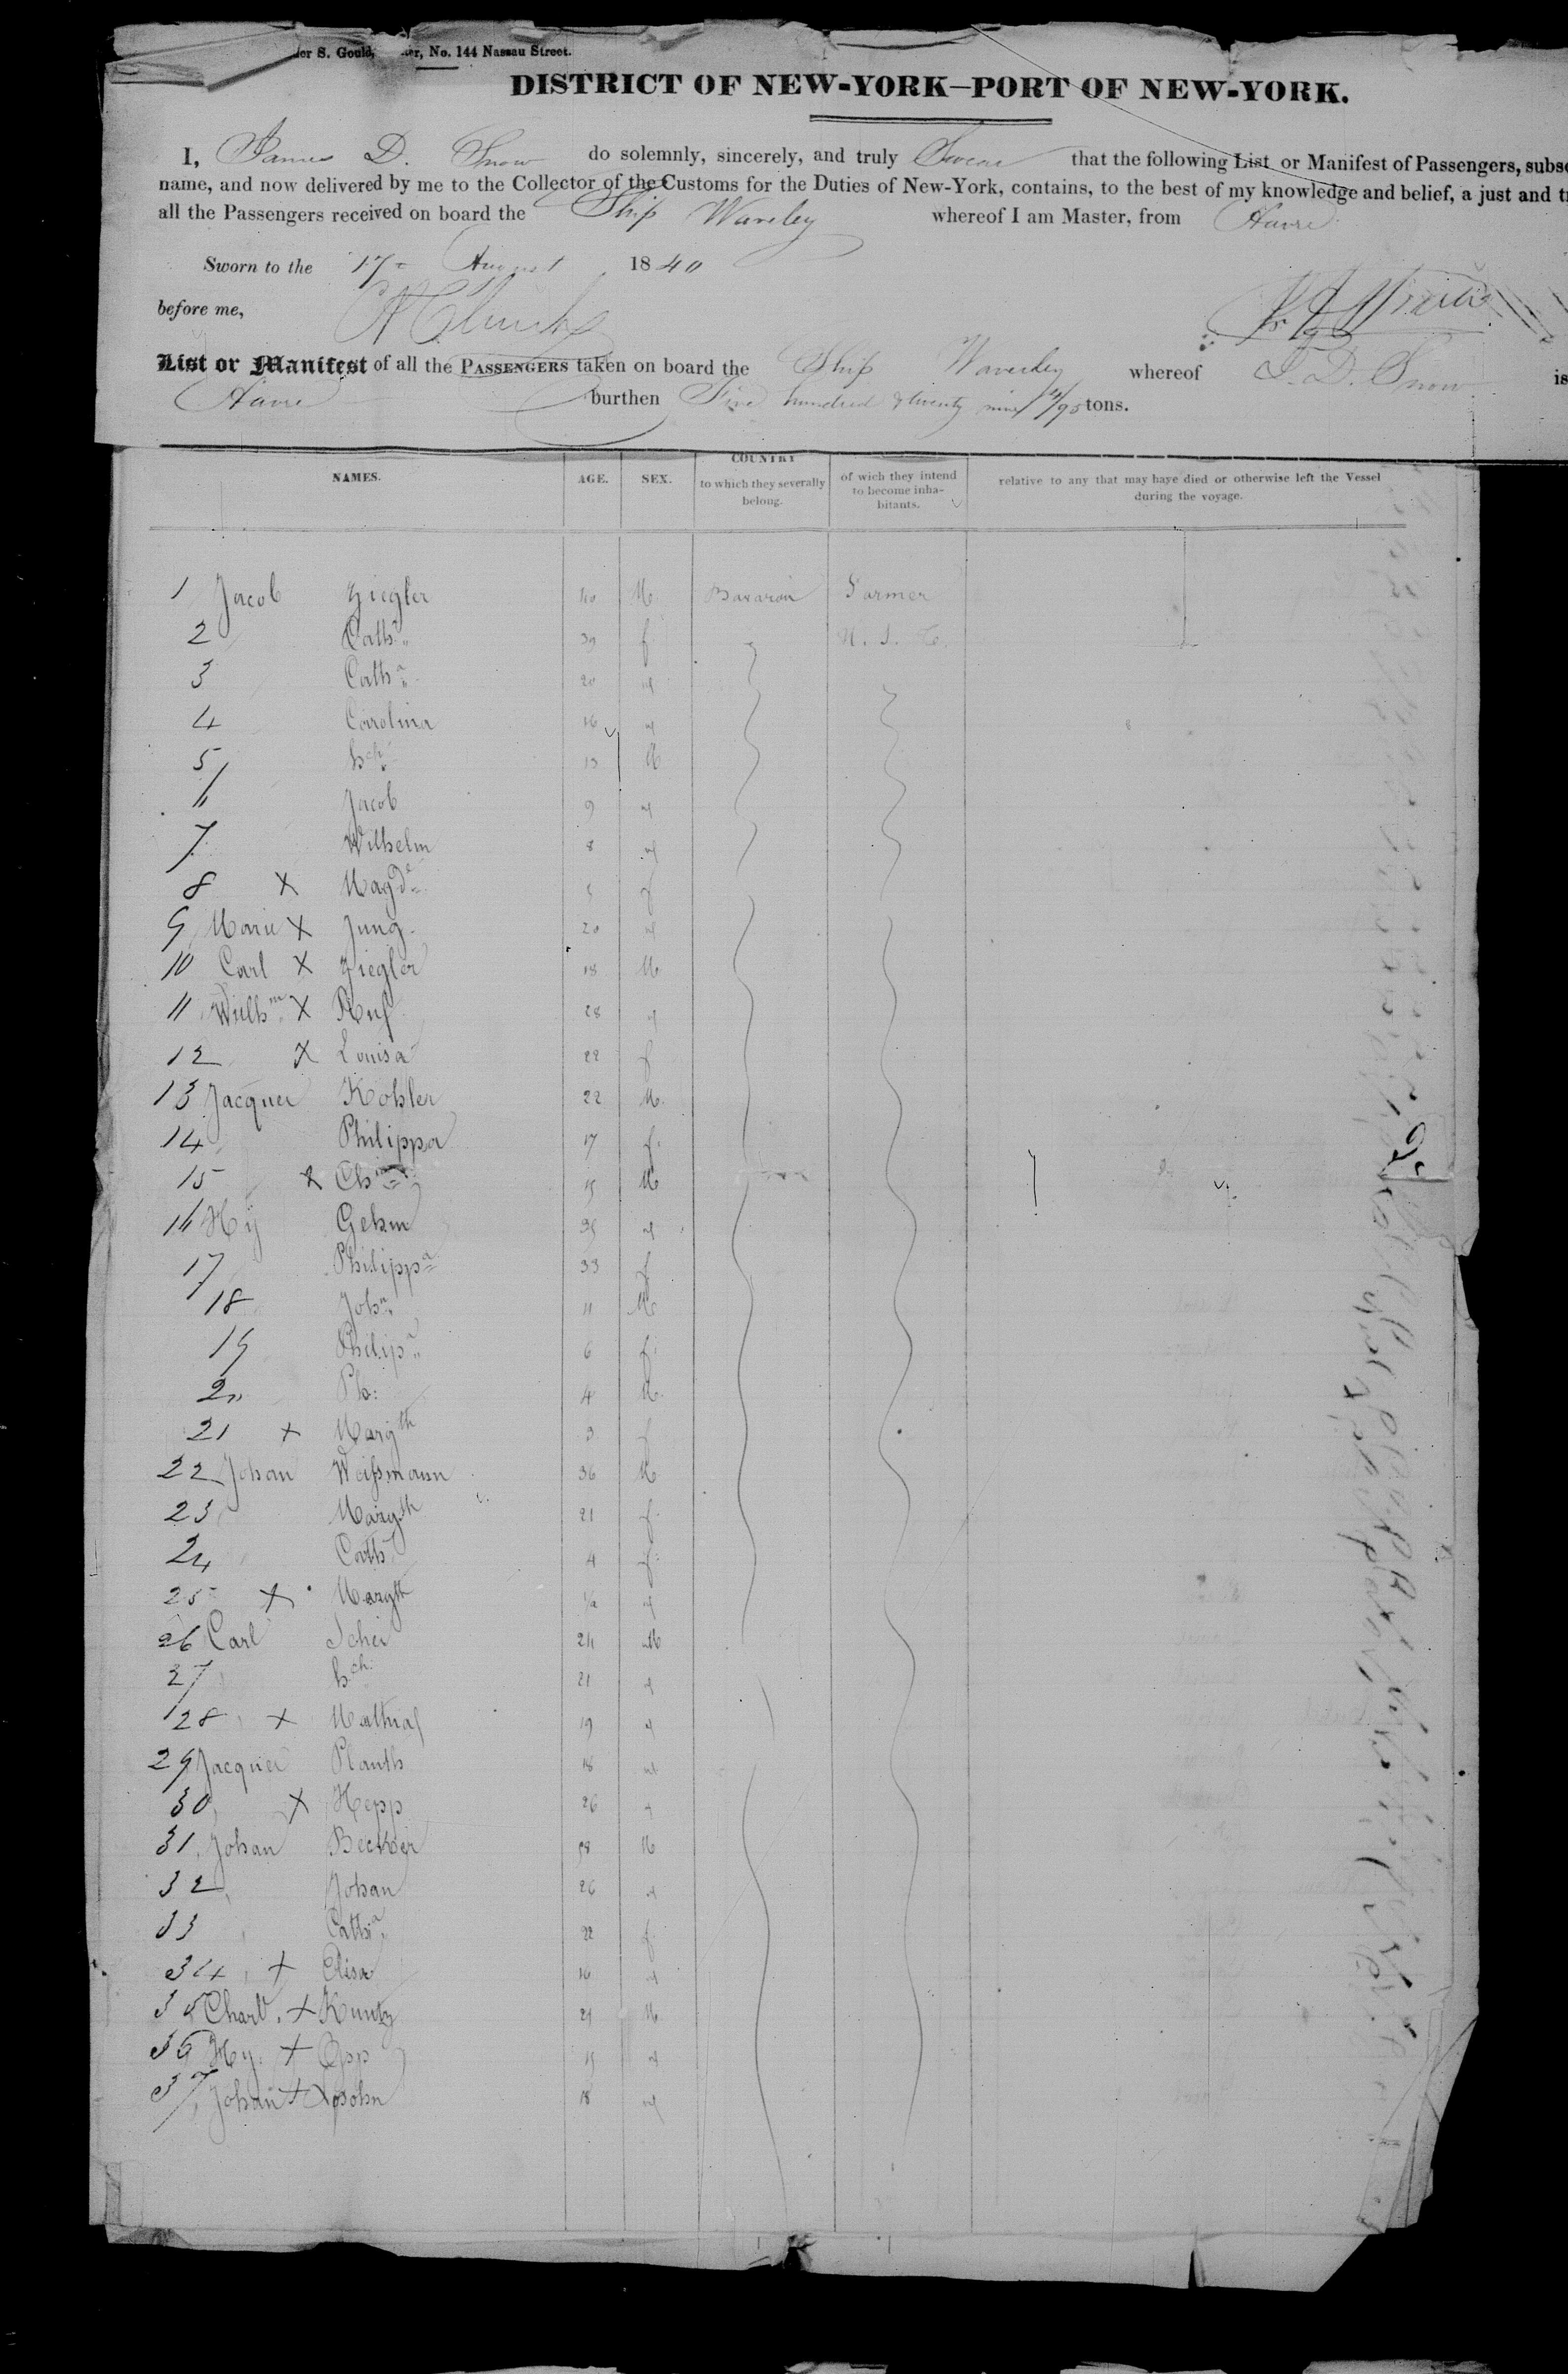 er S. Gould, er, No. 144 Nassau Street.
DISTRICT OF NEW-YORK—PORT OF NEW-YORK.
I, James D. Snow do solemnly, sincerely, and truly Swear that the following List or Manifest of Passengers, subsc
name, and now delivered by me to the Collector of the Customs for the Duties of New-York, contains, to the best of my knowledge and belief, a just and tr
all the Passengers received on board the Ship Waverley whereof I am Master, from Havre
Sworn to the 17 August 1840
before me,
List or Manifest of all the PASSENGERS taken on board the Ship Waverley whereof J. D. Snow is
Havre burthen Five hundred & twenty nine /95 tons.
NAMES. AGE. SEX. COUNTRY to which they severally belong. of wich they intend to become inhabitants. relative to any that may have died or otherwise left the Vessel during the voyage.
1 Jacob Ziegler 40 M Bavarian Farmer
2 Cath.a 39 f U. S.
3 Cath.a 20 "
4 Carolina 16 "
5 hch 13 M
6 Jacob 9 "
7 Wilhelm 8 "
8 X Magd.a 5 f
9 Marie X Jung 20 "
10 Carl X Ziegler 18 M
11 Wilhm X Ruf 28 "
12 X Louisa 22 f
13 Jacques Kohler 22 M.
14 Philippa 17 f.
15 X Ch 15 M
16 Hy Gehm 35 "
17 Philippa 33 f
18 Joh.n 11 M
19 Philip.a 6 f.
20 Ph: 4 M.
21 X Margth 3 f
22 Johan Weissmann 36 M
23 Margth 21 f.
24 Cath 4 f.
25 X Margth 1/2 "
26 Carl Schei 24 M
27 hch 21 "
28 X Mathias 19 "
29 Jacques Planth 18 "
30 X Hepp 26 "
31 Johan Becker 58 M
32 Johan 26 "
33 Cath.a 22 f.
34 X Elisa 16 "
35 Charl. X Kuntz 21 M
36 Hy. X Opp 15 "
37 Johan X 18 "